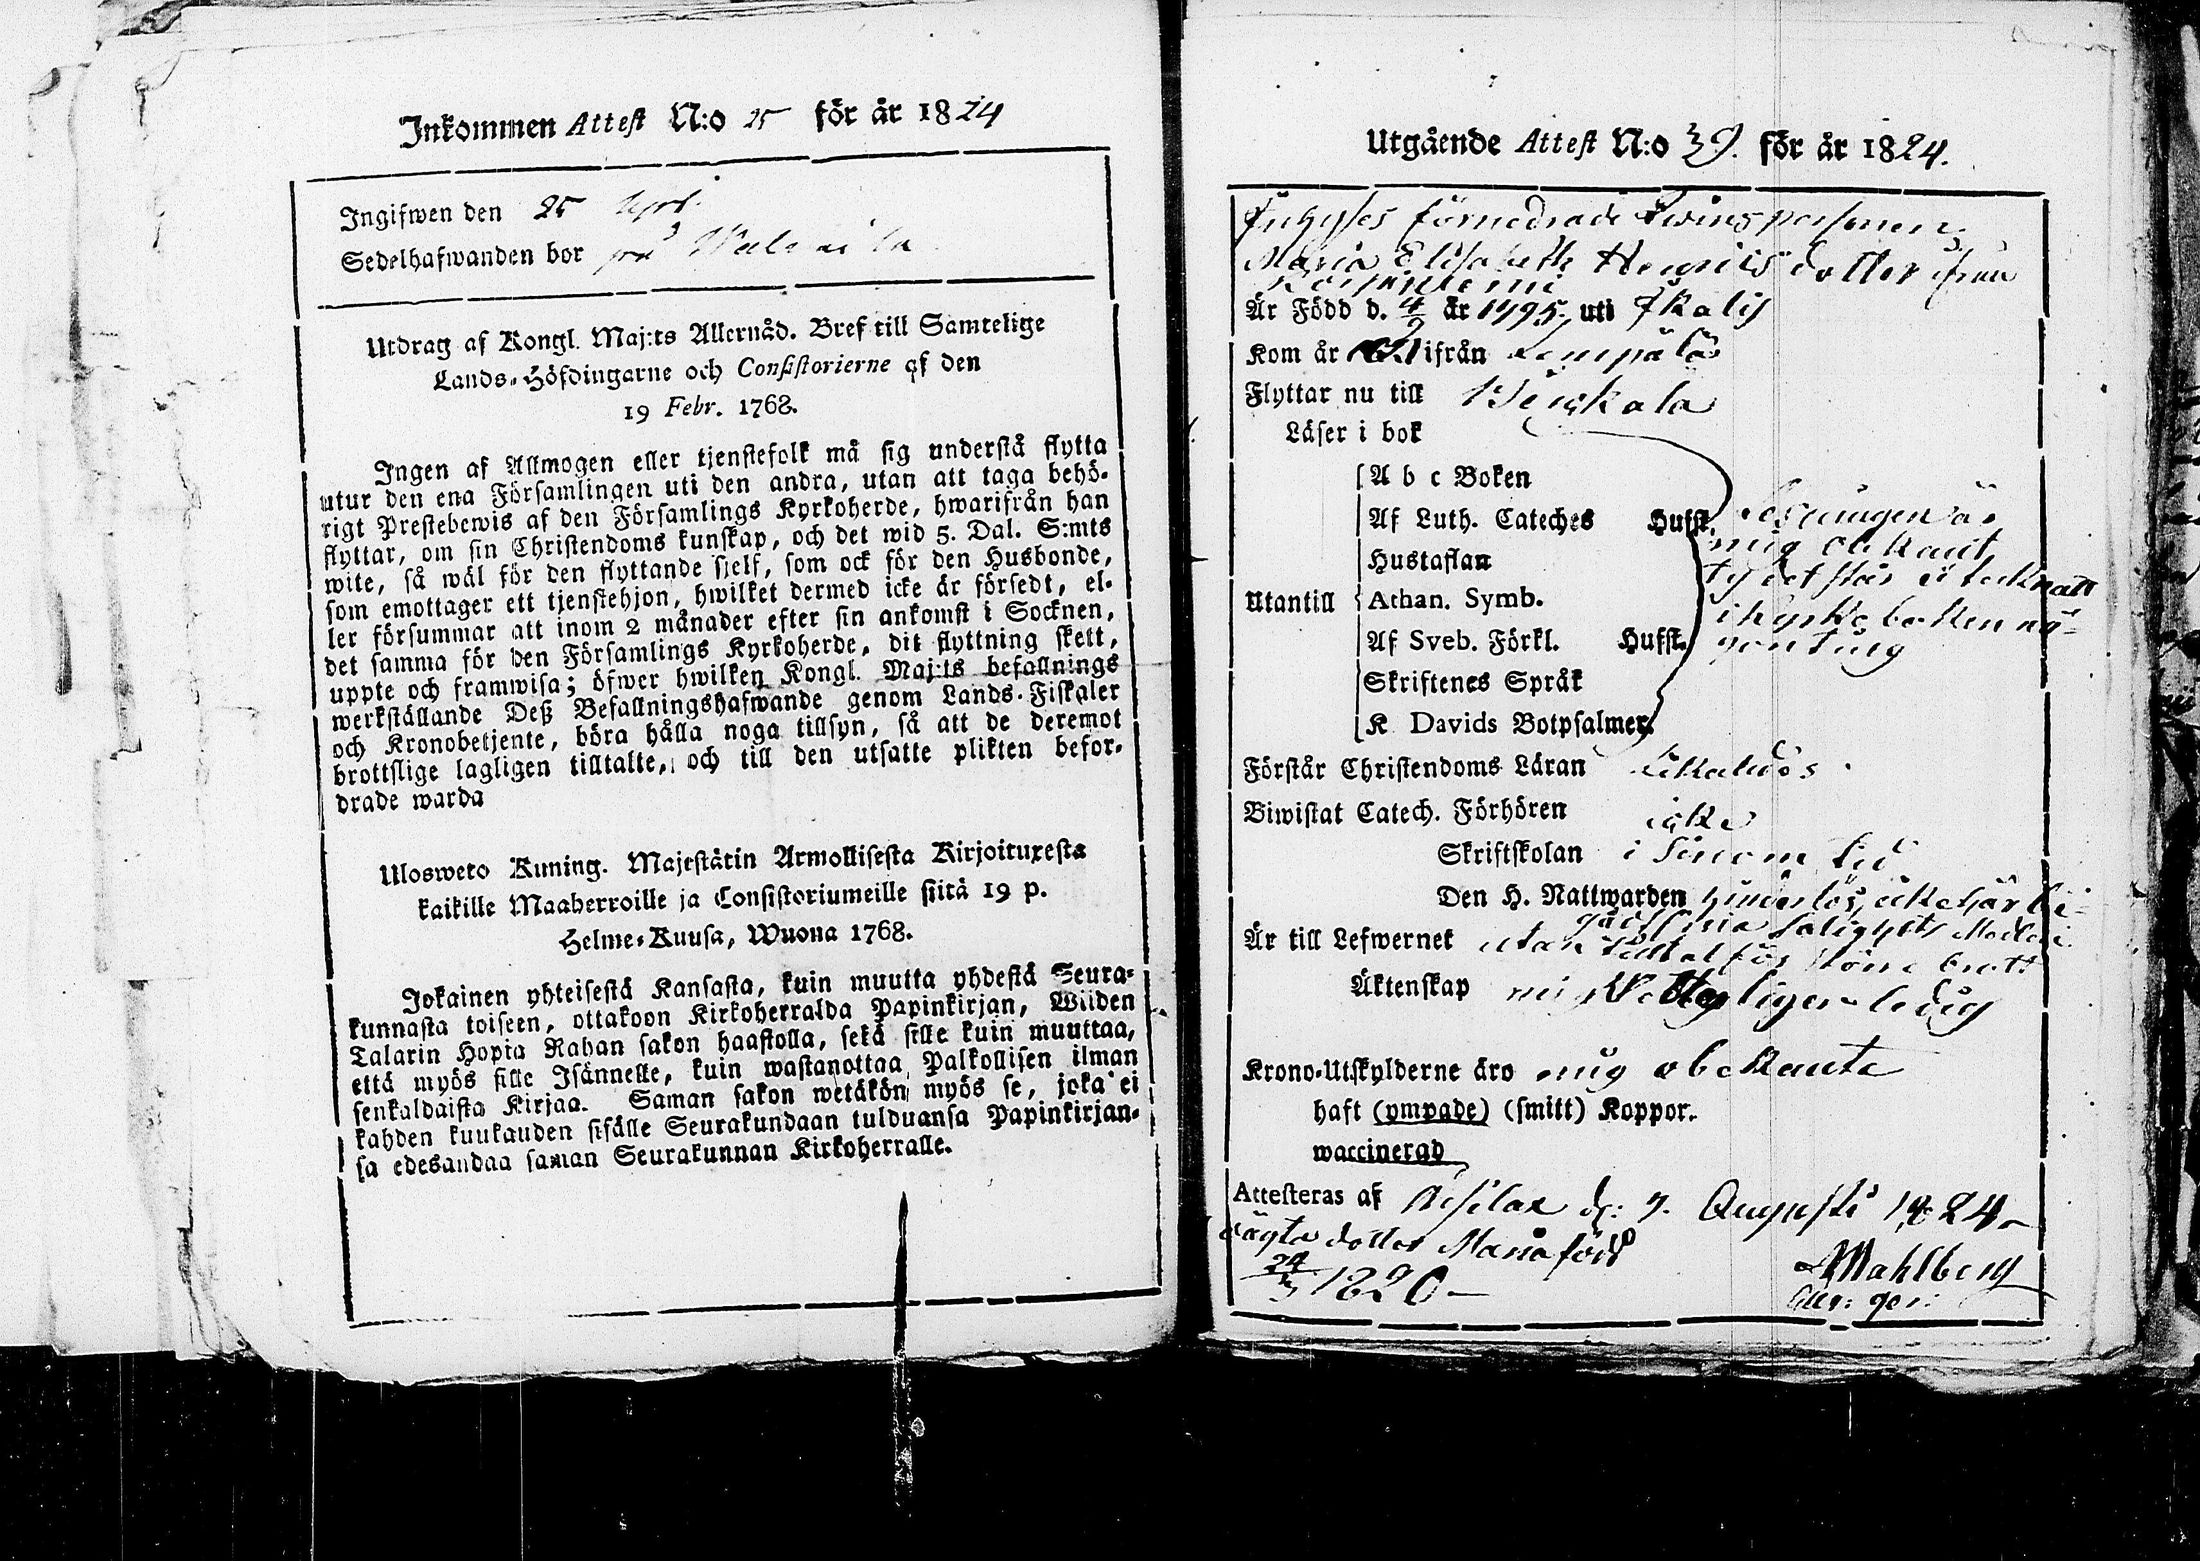 Inkommen Attest N:o 25 för år 1824
Ingifwen den 25
Sedelhafwanden bor på
Utdrag af Kongl. Maj:ts Allernåd. Bref till Samtelige
Lands-Höfdingarne och Consistorierne af den
19 Febr. 1768.
Ingen af Allmogen eller tjenstefolk må sig understå flytta
utur den ena Församlingen uti den andra, utan att taga behö-
rigt Prestebewis af den Församlings Kyrkoherde, hwarifrån han
flyttar, om sin Christendoms kunskap, och det wid 5. Dal. S:mts
wite, så wäl för den flyttande sjelf, som ock för den Husbonde,
som emottager ett tjenstehjon, hwilket dermed icke är försedt, el-
ler försummar att inom 2 månader efter sin ankomst i Socknen,
det samma för den Församlings Kyrkoherde, dit flyttning skett,
uppte och framwisa; öfwer hwilken Kongl. Maj:ts befallnings
werkställande Deß Befallningshafwande genom Lands-Fiskaler
och Kronobetjente, böra hålla noga tillsyn, så att de deremot
brottslige lagligen tilltalte, och till den utsatte plikten befor-
drade warda
Ulosweto Kuning. Majestätin Armollisesta Kirjoituxesta
kaikille Maaherroille ja Consistoriumeille siitä 19 p.
Helme-Kuusa, Wuona 1768.
Jokainen yhteisestä Kansasta, kuin muutta yhdestä Seura-
kunnasta toiseen, ottakoon Kirkoherralda Papinkirjan, Wiiden
Talarin Hopia Rahan sakon haastolla, sekä sille kuin muuttaa,
että myös sille Isännelle, kuin wastanottaa Palkollisen ilman
senkaldaista Kirjaa. Saman sakon wetäkön myös se, joka ei
kahden kuukauden sisälle Seurakundaan tulduansa Papinkirjan-
sa edesandaa saman Seurakunnan Kirkoherralle.
Utgående Attest N:o 39. för år 1824.
förnedrade Qwinspersonen
Maria Elisabeth Henricsdotter från
Är Född d. 4/9 år 1795 uti Ikalis
Kom år ifrån Lempälä
Flyttar nu till
Läser i bok
A b c Boken
Af Luth. Cateches Hufst. Läsningen är
Hustaflan mig obekant,
Utantill Athan. Symb. ty det står ej tecknatt
Af Sveb. Förkl. Hufst. i kyrkoboken nå-
Skriftenes Språk gonting
K Davids Botpsalmer.
Förstår Christendoms Läran likaledes
Biwistat Catech. Förhören icke
Skriftskolan i sinom tid
Den H. Nattwarden hinderlös, icke här be-
gådt sina Salighets Medel
Är till Lefwernet utan tilltal för större brott
Äktenskap mig Wetterligen ledig
Krono-Utskylderne äro mig obekante
haft (ympade) (smitt) Koppor.
waccinerad
Attesteras af d: 7. Augusti 1824
oägta dotter Maria född
24/3 1820
Mahlberg